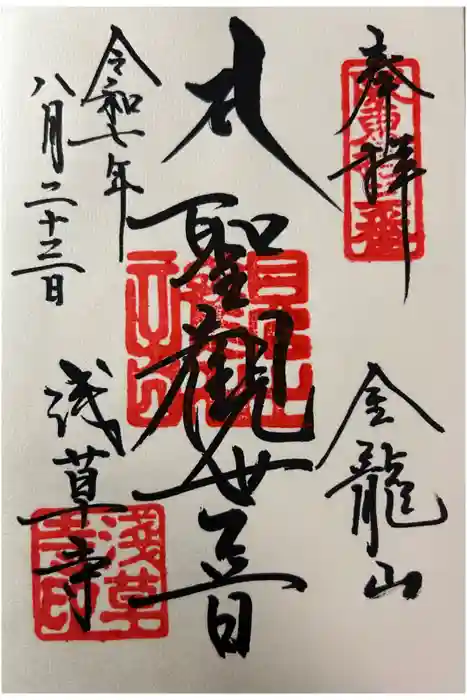 奉拝
金龍山
聖觀世音
令和七年
八月二十三日
浅草寺
淺草寺印